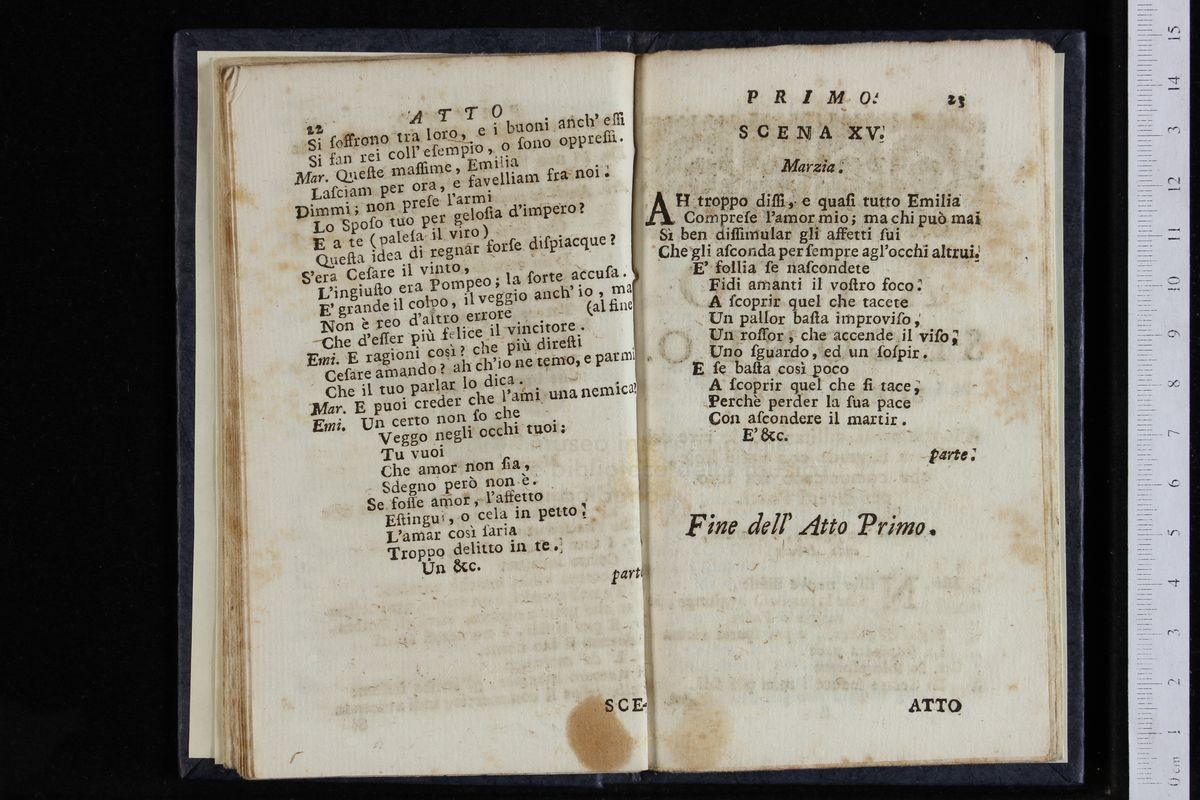 22
ATTO
Si ſoffrono tra loro, e i buoni anch' eſſi
Si fan rei coll' eſempio, o ſono oppreſſi.
Mar. Queſte maſſime, Emilia
Laſciam per ora, e favelliam fra noi.
Dimmi; non preſe l'armi
Lo Spoſo tuo per geloſia d'impero?
E a te (paleſa il viro)
Queſta idea di regnar forſe diſpiacque?
S'era Ceſare il vinto,
L'ingiuſto era Pompeo; la ſorte accuſa.
E' grande il colpo, il veggio anch' io, ma
Non è reo d'altro errore (al fine
Che d'eſſer più felice il vincitore.
Emi. E ragioni così? che più direſti
Ceſare amando? ah ch'io ne temo, e parmi
Che il tuo parlar lo dica.
Mar. E puoi creder che l'ami una nemica?
Emi. Un certo non ſo che
Veggo negli occhi tuoi:
Tu vuoi
Che amor non ſia,
Sdegno però non è.
Se foſſe amor, l'affetto
Eſtingui, o cela in petto:
L'amar così ſaria
Troppo delitto in te.
Un &c.
part
SCE-
PRIMO.
23
SCENA XV.
Marzia.
AH troppo diſſi, e quaſi tutto Emilia
Compreſe l'amor mio; ma chi può mai
Sì ben diſſimular gli affetti ſui
Che gli aſconda per ſempre agl'occhi altrui.
E' follia ſe naſcondete
Fidi amanti il voſtro foco:
A ſcoprir quel che tacete
Un pallor baſta improviſo,
Un roſſor, che accende il viſo,
Uno ſguardo, ed un ſoſpir.
E ſe baſta così poco
A ſcoprir quel che ſi tace,
Perchè perder la ſua pace
Con aſcondere il martir.
E' &c.
parte.
Fine dell' Atto Primo.
ATTO
0 cm 1 2 3 4 5 6 7 8 9 10 11 12 13 14 15